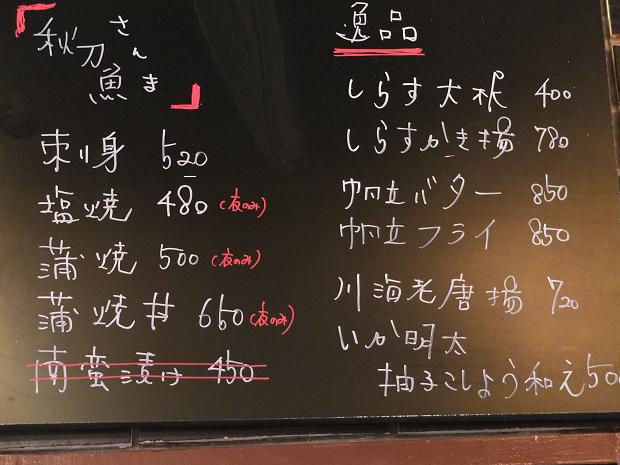 『秋刀魚 さんま』
刺身 520
塩焼 480 (夜のみ)
蒲焼 500 (夜のみ)
蒲焼丼 650 (夜のみ)
南蛮漬け 450
逸品
しらす大根 400
しらすかき揚 780
帆立バター 850
帆立フライ 850
川海老唐揚 720
いか明太
柚子こしょう和え 500